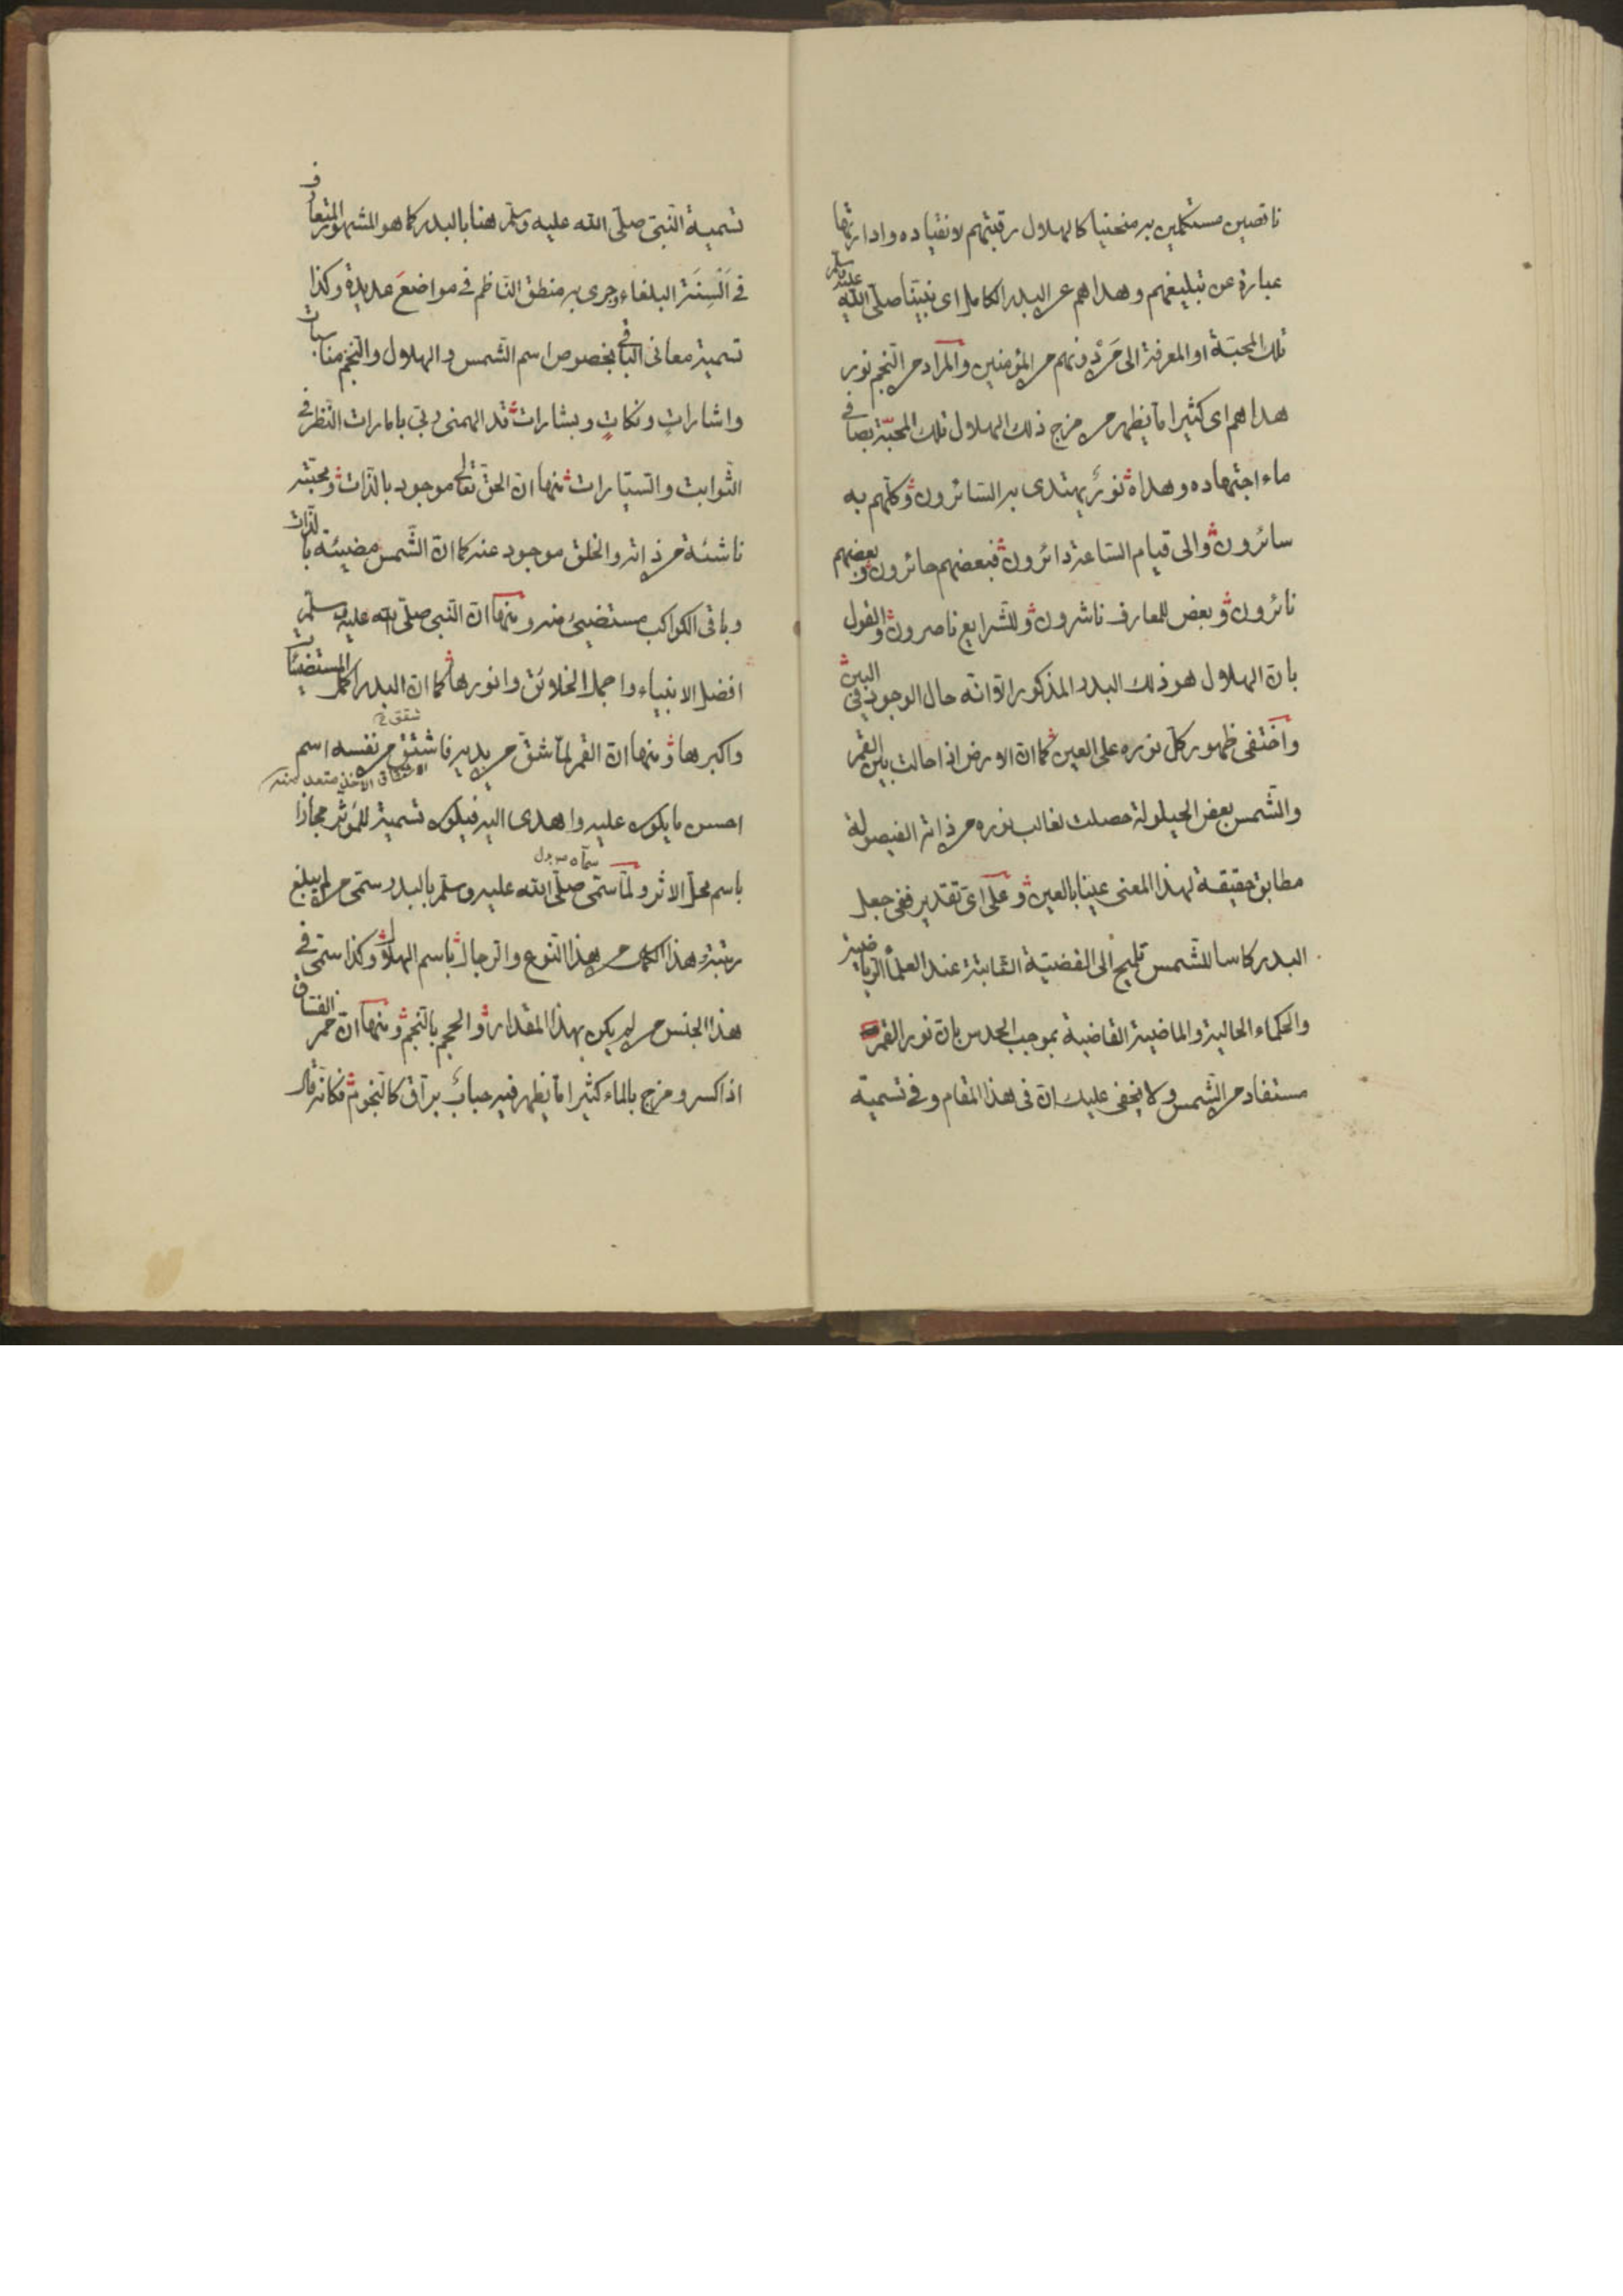 ناقصين مستكملين به منحنيا كالهلال رقبتهم لانقياده وادارتها
عبارة عن تبليغهم وهداهم عن البدر الكامل اى نبيّنا صلّى اللّه عليه وسلّم
تلك المحبّة او المعرفة الى مَن دونهم من المؤمنين والمراد من النّجم نور
هداهم اى كثيرا مّا يظهر من مزج ذلك الهلال تلك المحبّة بصافى
ماء اجتهاده وهداه نورٌ يهتدى به السّائرون وكلّهم به
سائرون والى قيام السّاعة دائرون فبعضهم حائرون وبعضهم
نائرون وبعض للمعارف ناشرون وللشّرايع ناصرون والقول
بانّ الهلال هو ذلك البدر المذكور الّا انّه حال الوجود فى البين
واختفى ظهور كلّ نوره على العين كما انّ الارض اذا حالت بين القمر
والشّمس بعض الحيلولة حصلت لغالب نوره من ذاته الفيصولة
مطابق حقيقة لهذا المعنى عينا بالعين وعلى اىّ تقدير ففى جعل
البدر كاسا للشّمس تلميح الى القضيّة الثّابتة عند العلماء الرّياضية
والحكماء الحالية والماضية القاضية بموجب الحدس بانّ نور القمر
مستفاد من الشّمس ولا يخفى عليك انّ فى هذا المقام وفى تسمية
تسمية النّبىّ صلّى اللّه عليه وسلّم هنا بالبدر كما هو المشهور المتعارف
فى اَلْسِنَة البلغاء وجرى به منطق النّاظم فى مواضعَ عديدة وكذا
تسمية معانى الباقى بخصوص اسم الشّمس والهلال والنّجم مناسبات
واشاراتٍ ونكاتٍ وبشارات قد الهمنى ربّى بامارات النّظر فى
الثّوابت والسّيّارات منها انّ الحقّ تعالى موجود بالذّات ومحبّته
ناشئة من ذاته والخلق موجود عنه كما انّ الشّمس مضيئة بالذّات
وباقى الكواكب مستضيئ منه ومنها انّ النّبى صلّى اللّه عليه وسلّم
افضل الانبياء واجمل الخلائق وانورها كما انّ البدر اكمل المستضيئات
واكبرها ومنها انّ القمر لمّا شقّ من يديه فاشتقّ من نفسه اسم
الاشتقاق الاخذ متعد منه
احسن ما يكون عليه واهدى اليه فيكون تسمية للمؤثّر مجازا
باسم محلّ الاثر ولمّا سمّى صلّى اللّه عليه وسلّم بالبدر سمّى من لم يبلغ
رتبة هذا الكمال من هذا النّوع والرّجال باسم الهلال وكذا سمّى فى
هذا الجنس من لم يكن بهذا المقدار والحجم بالنّجم ومنها انّ خمر العشاق
اذا كسر ومزج بالماء كثيرا مّا يظهر فيه حبابٌ برّاق كالنّجوم فكانّه قال